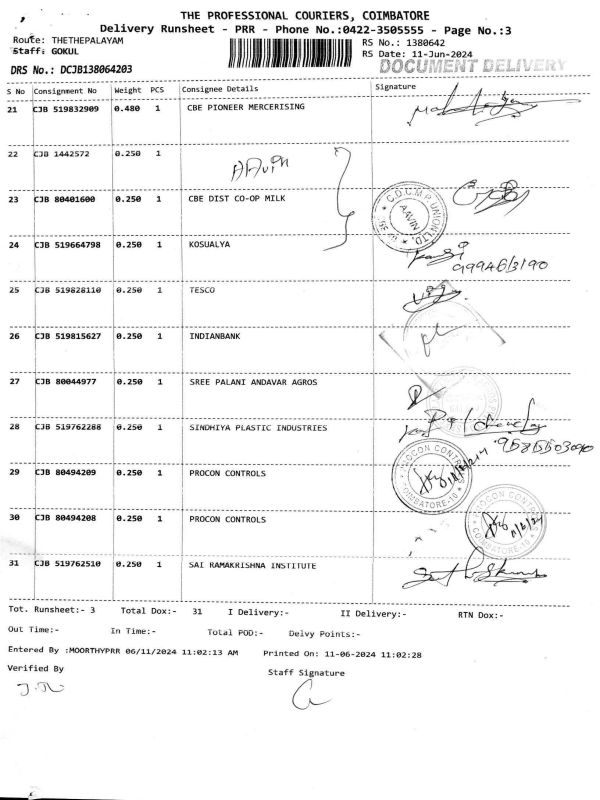 THE PROFESSIONAL COURIERS, COIMBATORE
Delivery Runsheet - PRR - Phone No.:0422-3505555 - Page No.:3
Route: THETHEPALAYAM
RS No.: 1380642
Staff: GOKUL
RS Date: 11-Jun-2024
DRS No.: DCJB138064203
DOCUMENT DELIVERY
S No Consignment No Weight PCS Consignee Details Signature
21 CJB 519832909 0.480 1 CBE PIONEER MERCERISING
22 CJB 1442572 0.250 1
23 CJB 80401600 0.250 1 CBE DIST CO-OP MILK
C.D.C.M.P. UNION LTD.
AAVIN
24 CJB 519664798 0.250 1 KOSUALYA
25 CJB 519828110 0.250 1 TESCO
26 CJB 519815627 0.250 1 INDIANBANK
27 CJB 80044977 0.250 1 SREE PALANI ANDAVAR AGROS
28 CJB 519762288 0.250 1 SINDHIYA PLASTIC INDUSTRIES
29 CJB 80494209 0.250 1 PROCON CONTROLS
30 CJB 80494208 0.250 1 PROCON CONTROLS
COIMBATORE-10
31 CJB 519762510 0.250 1 SAI RAMAKRISHNA INSTITUTE
Tot. Runsheet:- 3 Total Dox:- 31 I Delivery:- II Delivery:- RTN Dox:-
Out Time:- In Time:- Total POD:- Delvy Points:-
Entered By :MOORTHYPRR 06/11/2024 11:02:13 AM Printed On: 11-06-2024 11:02:28
Verified By Staff Signature